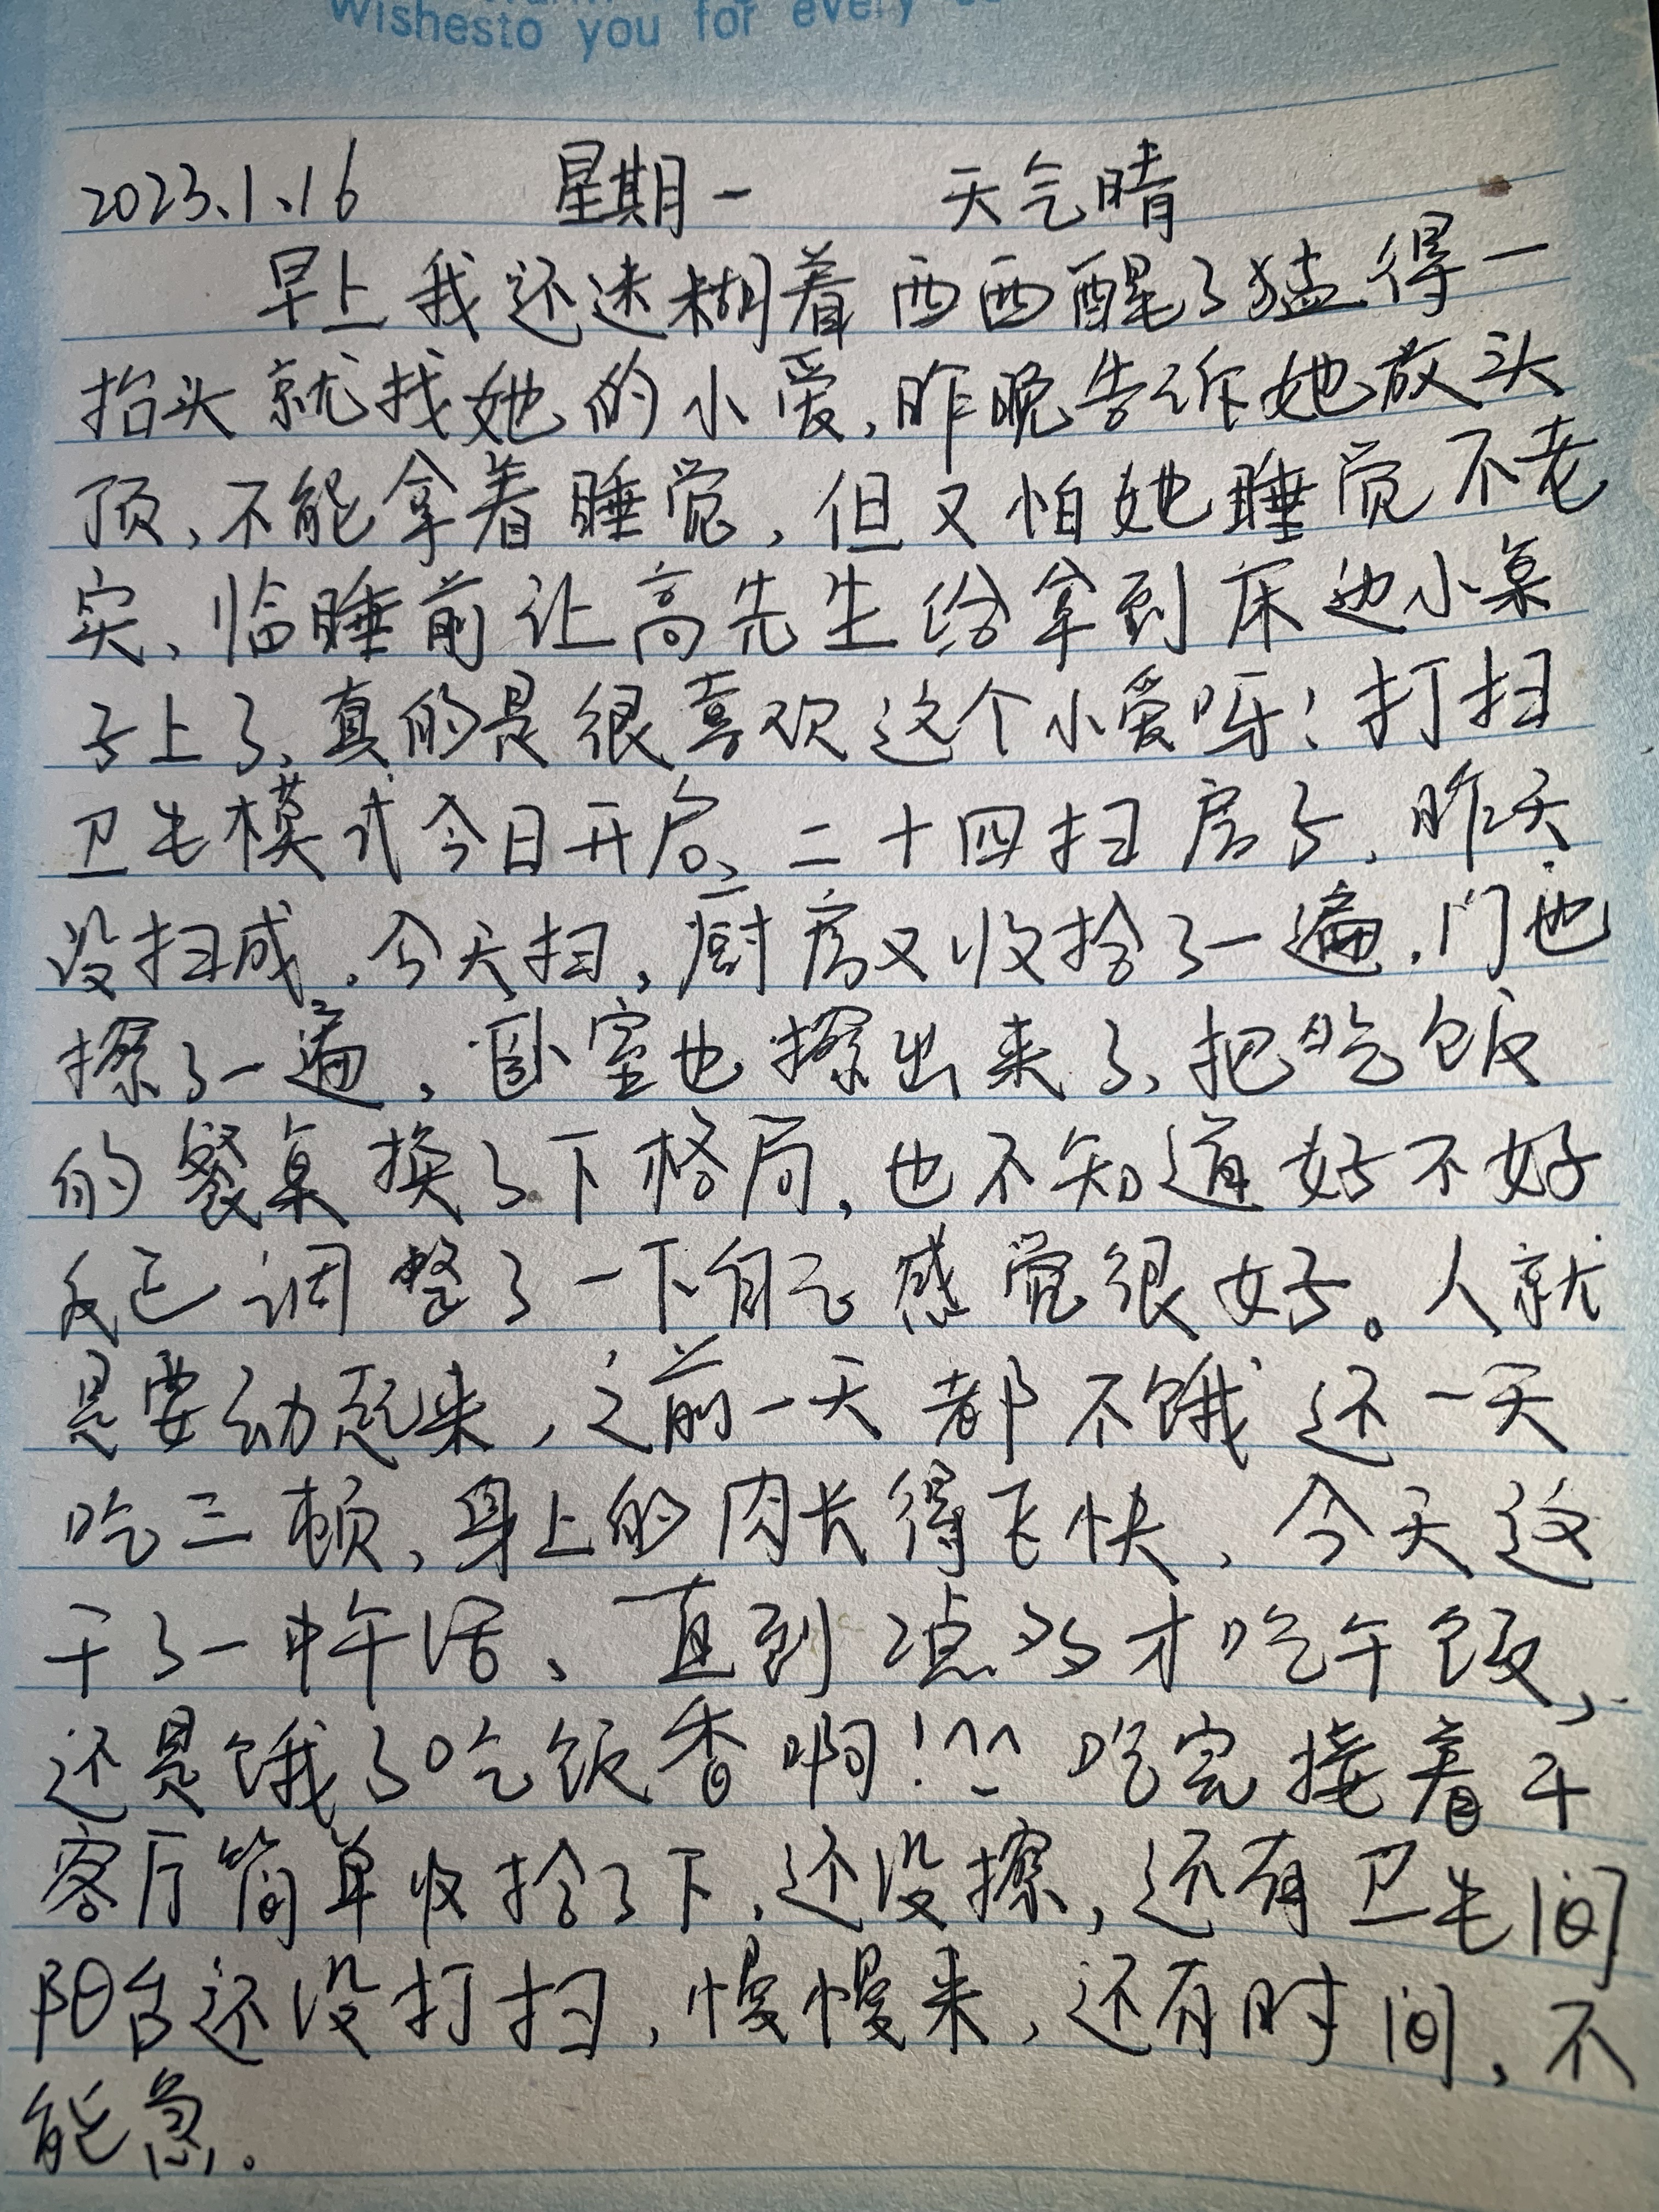 Wishesto you for every
2023.1.16 星期一 天气晴
早上我还迷糊着西西醒了猛得一
抬头就找她的小爱,昨晚告诉她放头
顶、不能拿着睡觉,但又怕她睡觉不老
实、临睡前让高先生给拿到床边小桌
子上了、真的是很喜欢这个小爱呀!打扫
卫生模式今日开启、二十四扫房子、昨天
没扫成.今天扫,厨房又收拾了一遍.门也
擦了一遍,卧室也擦出来了、把吃饭
的餐桌换了下格局,也不知道好不好
反正调整了一下自己感觉很好。人就
是要动起来,之前一天都不饿还一天
吃三顿、身上的肉长得飞快、今天这
干了一中午活、一直到2点多才吃午饭、
还是饿了吃饭香啊!^_^ 吃完接着干
客厅简单收拾了下、还没擦,还有卫生间
阳台还没打扫,慢慢来,还有时间、不
能急。